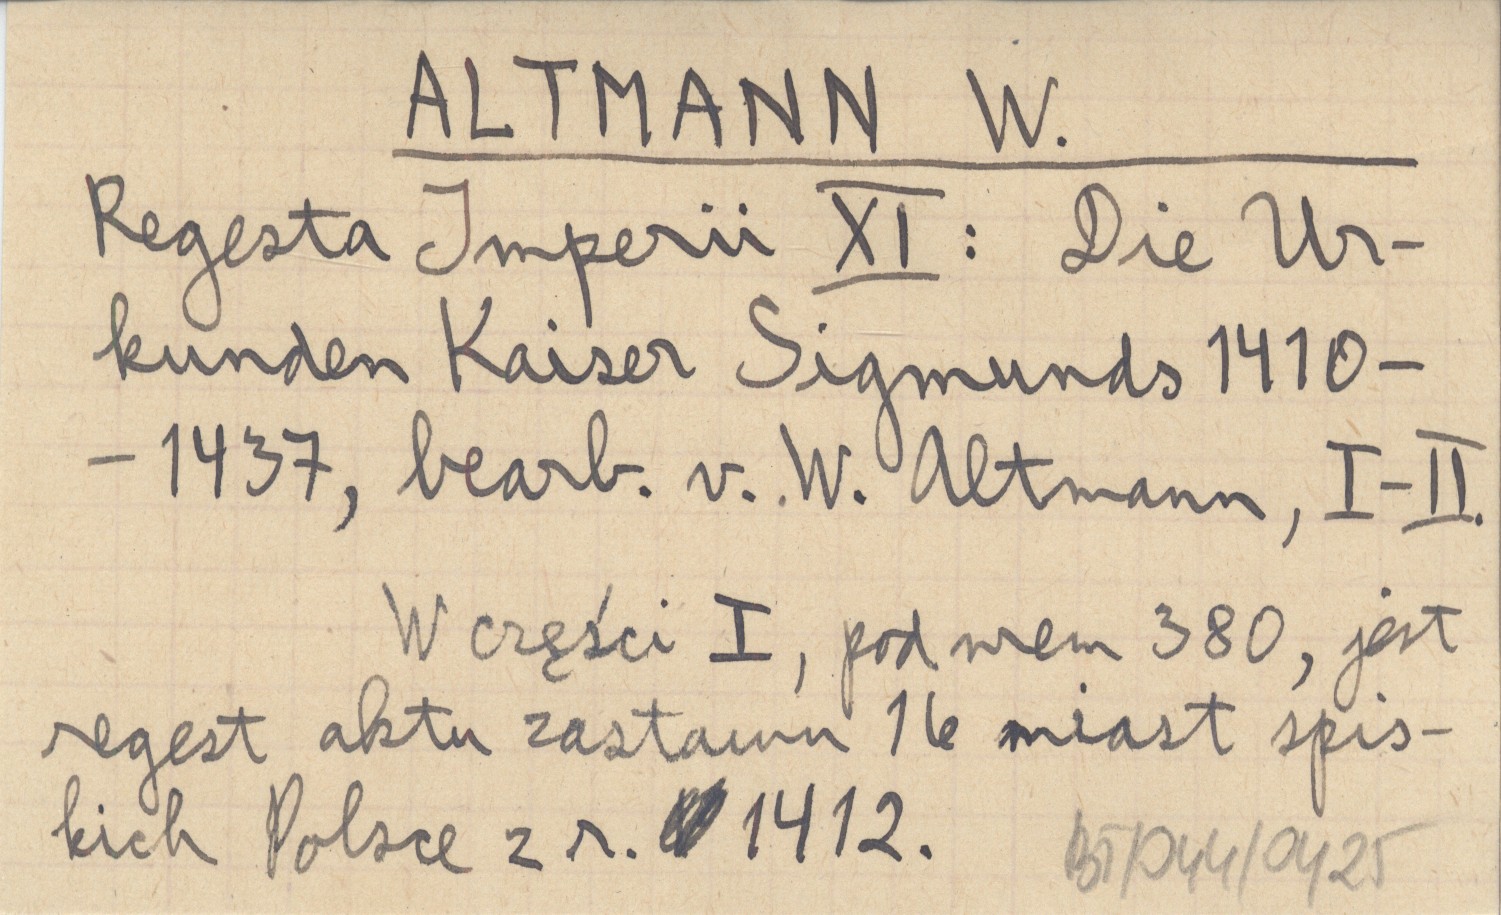 ALTMANN W.
Regesta Imperii XI : Die Ur-
kunden Kaiser Sigmunds 1410-
-1437, bearb. v. W. Altmann, I-II.
W części I, pod nrem 380, jest
regest aktu zastawu 16 miast spis-
kich Polsce z r. 1412.